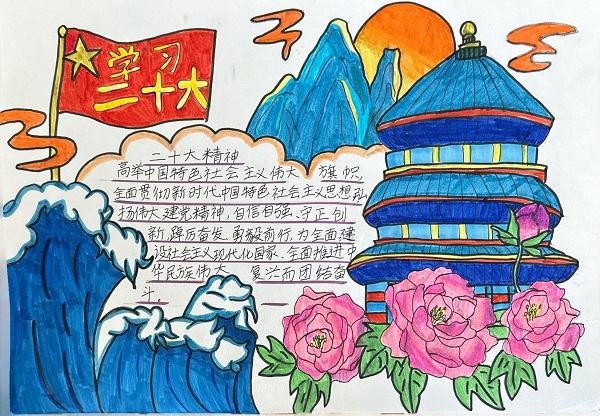 学习
二十大
二十大精神
高举中国特色社会主义伟大旗帜,
全面贯彻新时代中国特色社会主义思想弘
扬伟大建党精神,自信自强、守正创
新,踔厉奋发、勇毅前行,为全面建
设社会主义现代化国家、全面推进中
华民族伟大复兴而团结奋
斗。